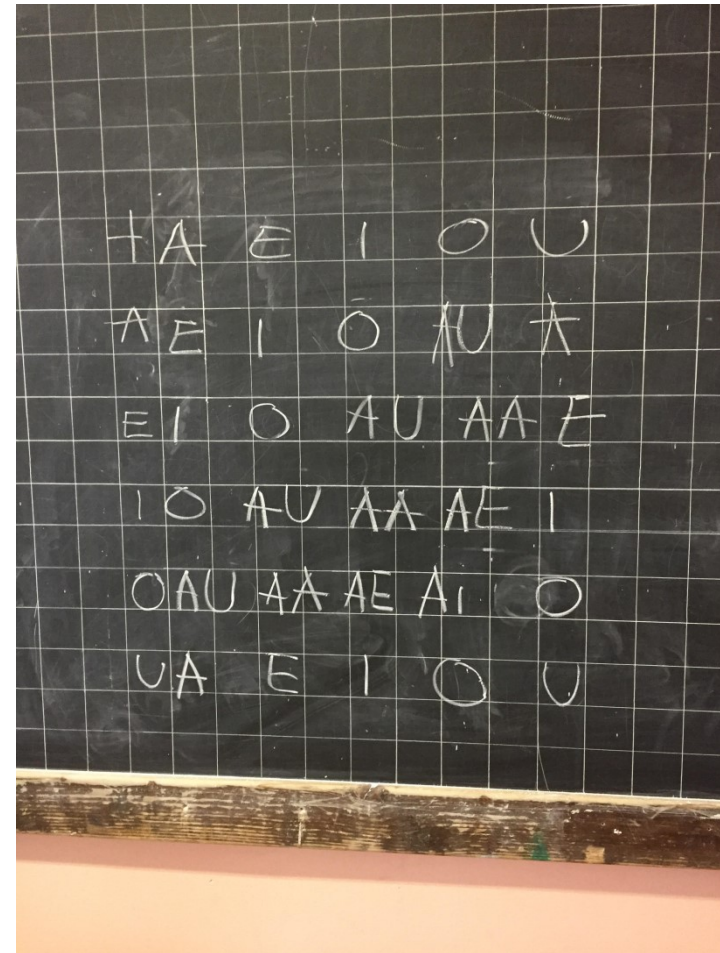 + A E I O U
A E I O AU A
E I O AU AA E
I O AU AA AE I
O AU AA AE AI O
U A E I O U